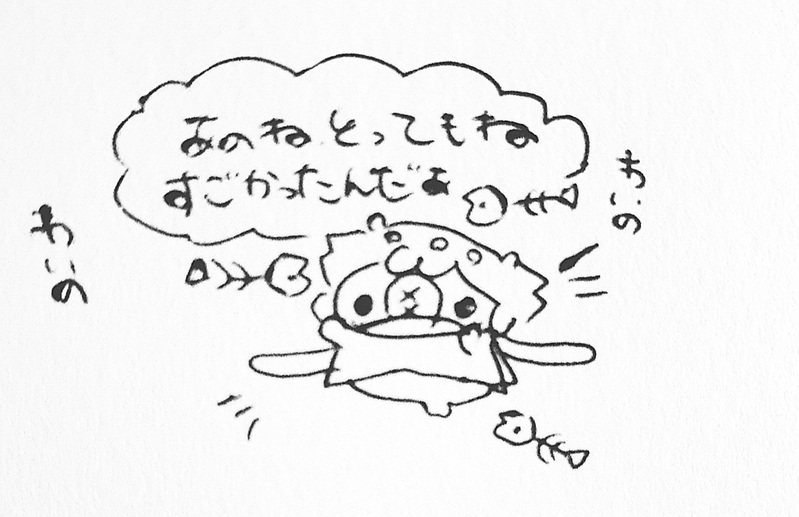 あのね とってもね
すごかったんだぁ
わいの
わいの